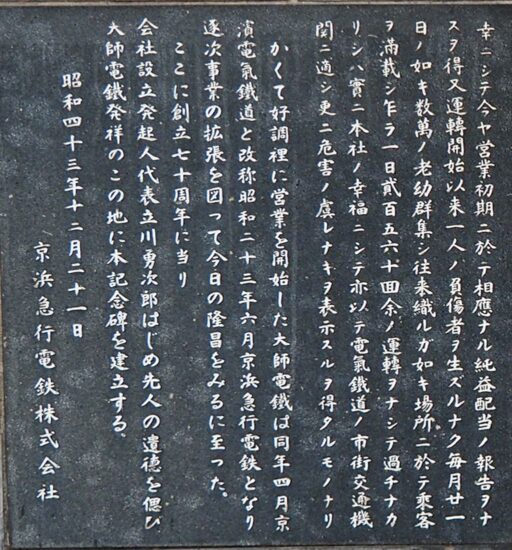 幸ニシテ今ヤ営業初期ニ於テ相應ナル純益配当ノ報告ヲナ
スヲ得又運轉開始以来一人ノ負傷者ヲ生ズルナク毎月廿一
日ノ如キ数萬ノ老幼群集シ往来織ルガ如キ場所ニ於テ乘客
ヲ満載シ乍ラ一日貳百五六十回余ノ運轉ヲナシテ過チナカ
リシハ實ニ本社ノ幸福ニシテ亦以テ電氣鐵道ノ市街交通機
関ニ適シ更ニ危害ノ虞レナキヲ表示スルヲ得タルモノナリ
かくて好調裡に営業を開始した大師電鐵は同年四月京
濱電氣鐵道と改称昭和二十三年六月京浜急行電鉄となり
逐次事業の拡張を図って今日の隆昌をみるに至った。
ここに創立七十周年に当り
会社設立発起人代表立川勇次郎はじめ先人の遺徳を偲び
大師電鐵発祥のこの地に本記念碑を建立する。
昭和四十三年十二月二十一日
京浜急行電鉄株式会社